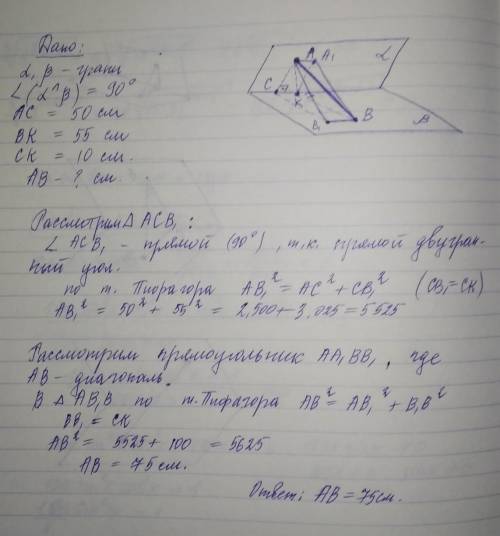 Дано:
α, β - грани
∠(α^β) = 90°
AC = 50 см
BK = 55 см
CK = 10 см.
AB - ? см.
A A₁ α
C K
B₁ B β
Рассмотрим Δ ACB₁ :
∠ ACB₁ - прямой (90°), т.к. прямой двугран-
ный угол.
по т. Пифагора AB₁² = AC² + CB₁² (CB₁=CK)
AB₁² = 50² + 55² = 2,500 + 3,025 = 5525
Рассмотрим прямоугольник AA₁BB₁, где
AB - диагональ.
В Δ AB₁B по т. Пифагора AB² = AB₁² + B₁B²
BB₁ = CK
AB² = 5525 + 100 = 5625
AB = 75 см.
Ответ: AB = 75 см.